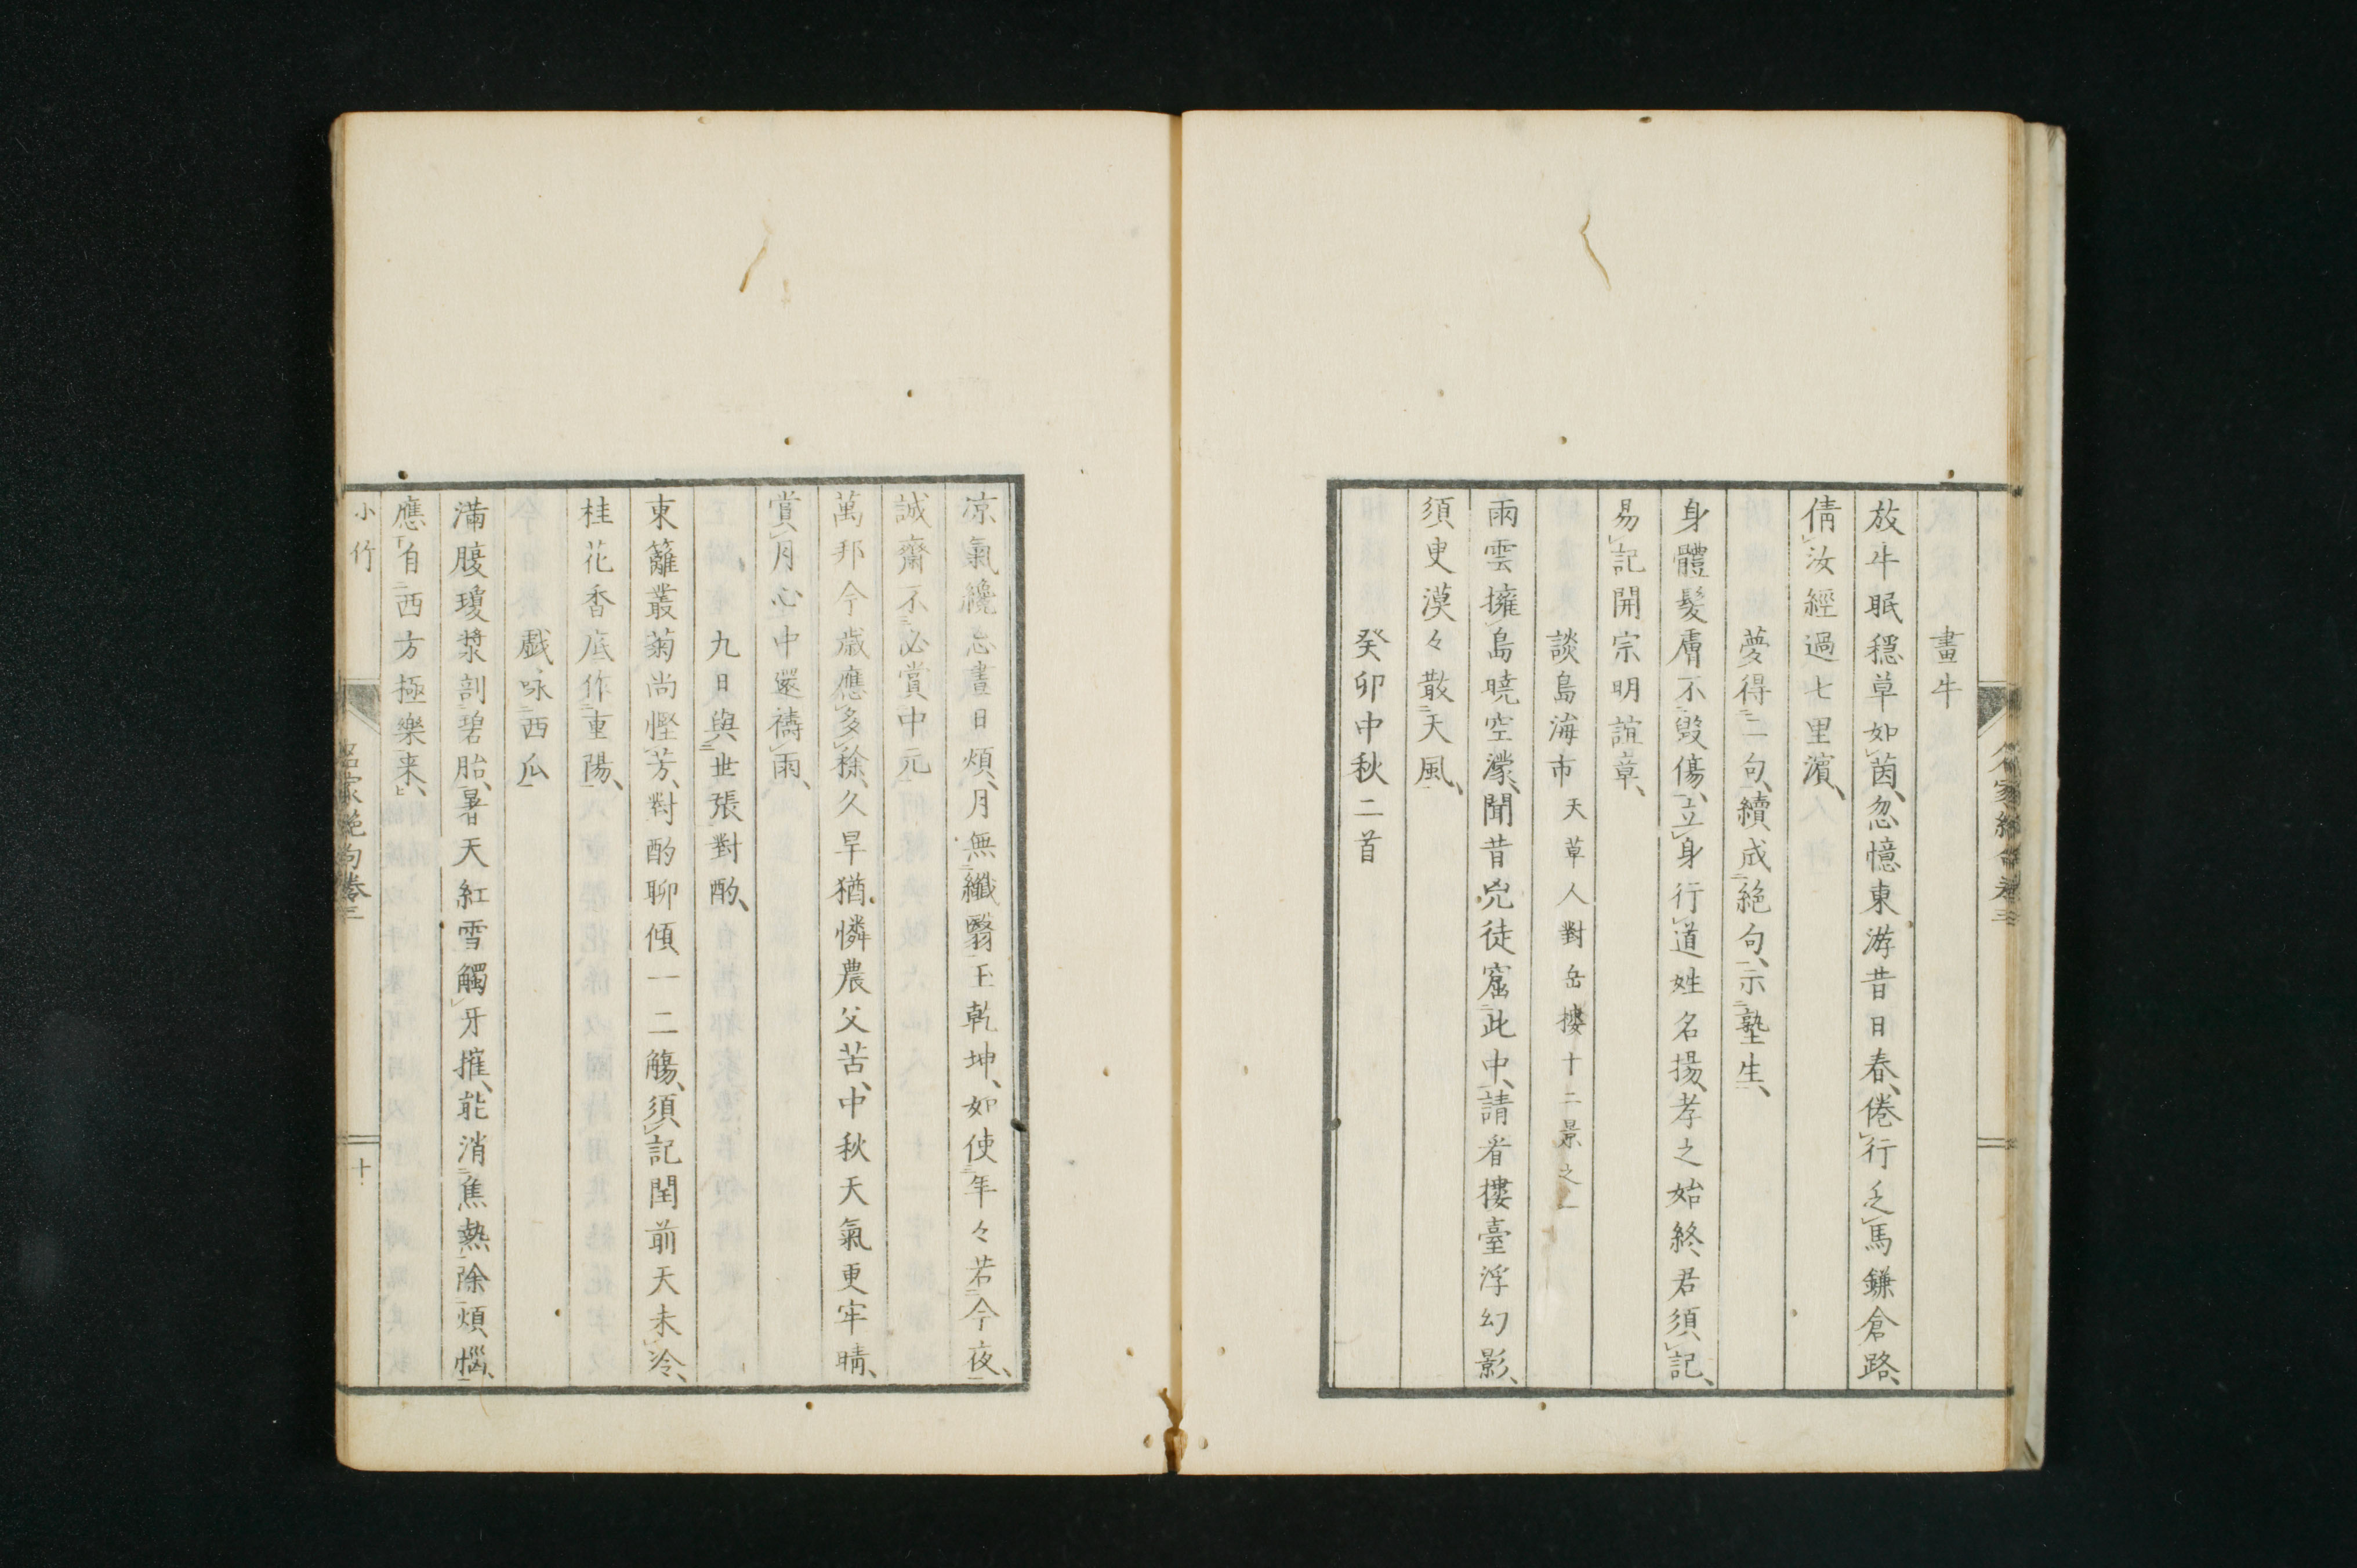 畫牛
放牛眠穩草如茵、忽憶東游昔日春、倦行乏馬鎌倉路、
倩汝經過七里濱、
夢得二句、續成絕句、示塾生、
身體髮膚不毀傷、立身行道姓名揚、孝之始終君須記、
易記開宗明誼章、
談島海市天草人對岳樓十二景之一
雨雲擁島曉空濛、聞昔兇徒窟此中、請看樓臺浮幻影、
須臾漠々散天風、
癸卯中秋二首
凉氣纔忘晝日煩、月無纖翳玉乾坤、如使年々若今夜、
誠齋不必賞中元
萬邦今歲應多稌、久旱猶憐農父苦、中秋天氣更牢晴、
賞月心中還禱雨、
九日與世張對酌、
東籬叢菊尚慳芳、對酌聊傾一二觴、須記閏前天未冷、
桂花香底作重陽、
戲咏西瓜
滿腹瓊漿剖碧胎、暑天紅雪觸牙摧、能消焦熱除煩惱、
應自西方極樂来、
小竹
名家絶句卷三
十